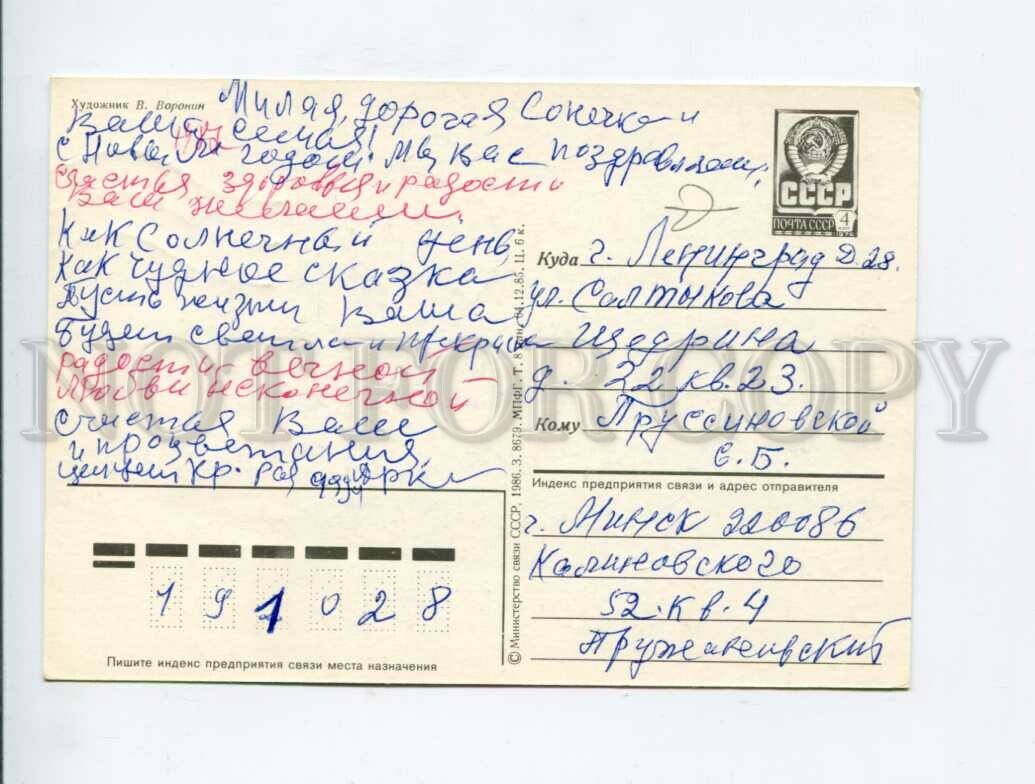 Художник В. Воронин
Милая, дорогая Сонечка и
Ваша семья!
С Новым годом! Мы Вас поздравляем,
счастья, здоровья и радости
Вам желаем.
Как солнечный день,
Как чудное сказка
Пусть жизнь Ваша
Будет светла и прекрасна
радости вечной
Любви нескончечной
Счастья Вам
и процветания
целуем Кр.
СССР
ПОЧТА СССР 4
Куда г. Ленинград Д-28.
ул. Салтыкова
Щедрина
д. 22 кв. 23.
Кому Пруссиновской
С. Б.
Индекс предприятия связи и адрес отправителя
г. Минск 220086
Калиновского
52 кв. 4
Пружановский
191028
Пишите индекс предприятия связи места назначения
© Министерство связи СССР, 1986. З. 8679. МПФГ. Т. 04.12.85. Ц. 6 к.
NOT FOR COPY